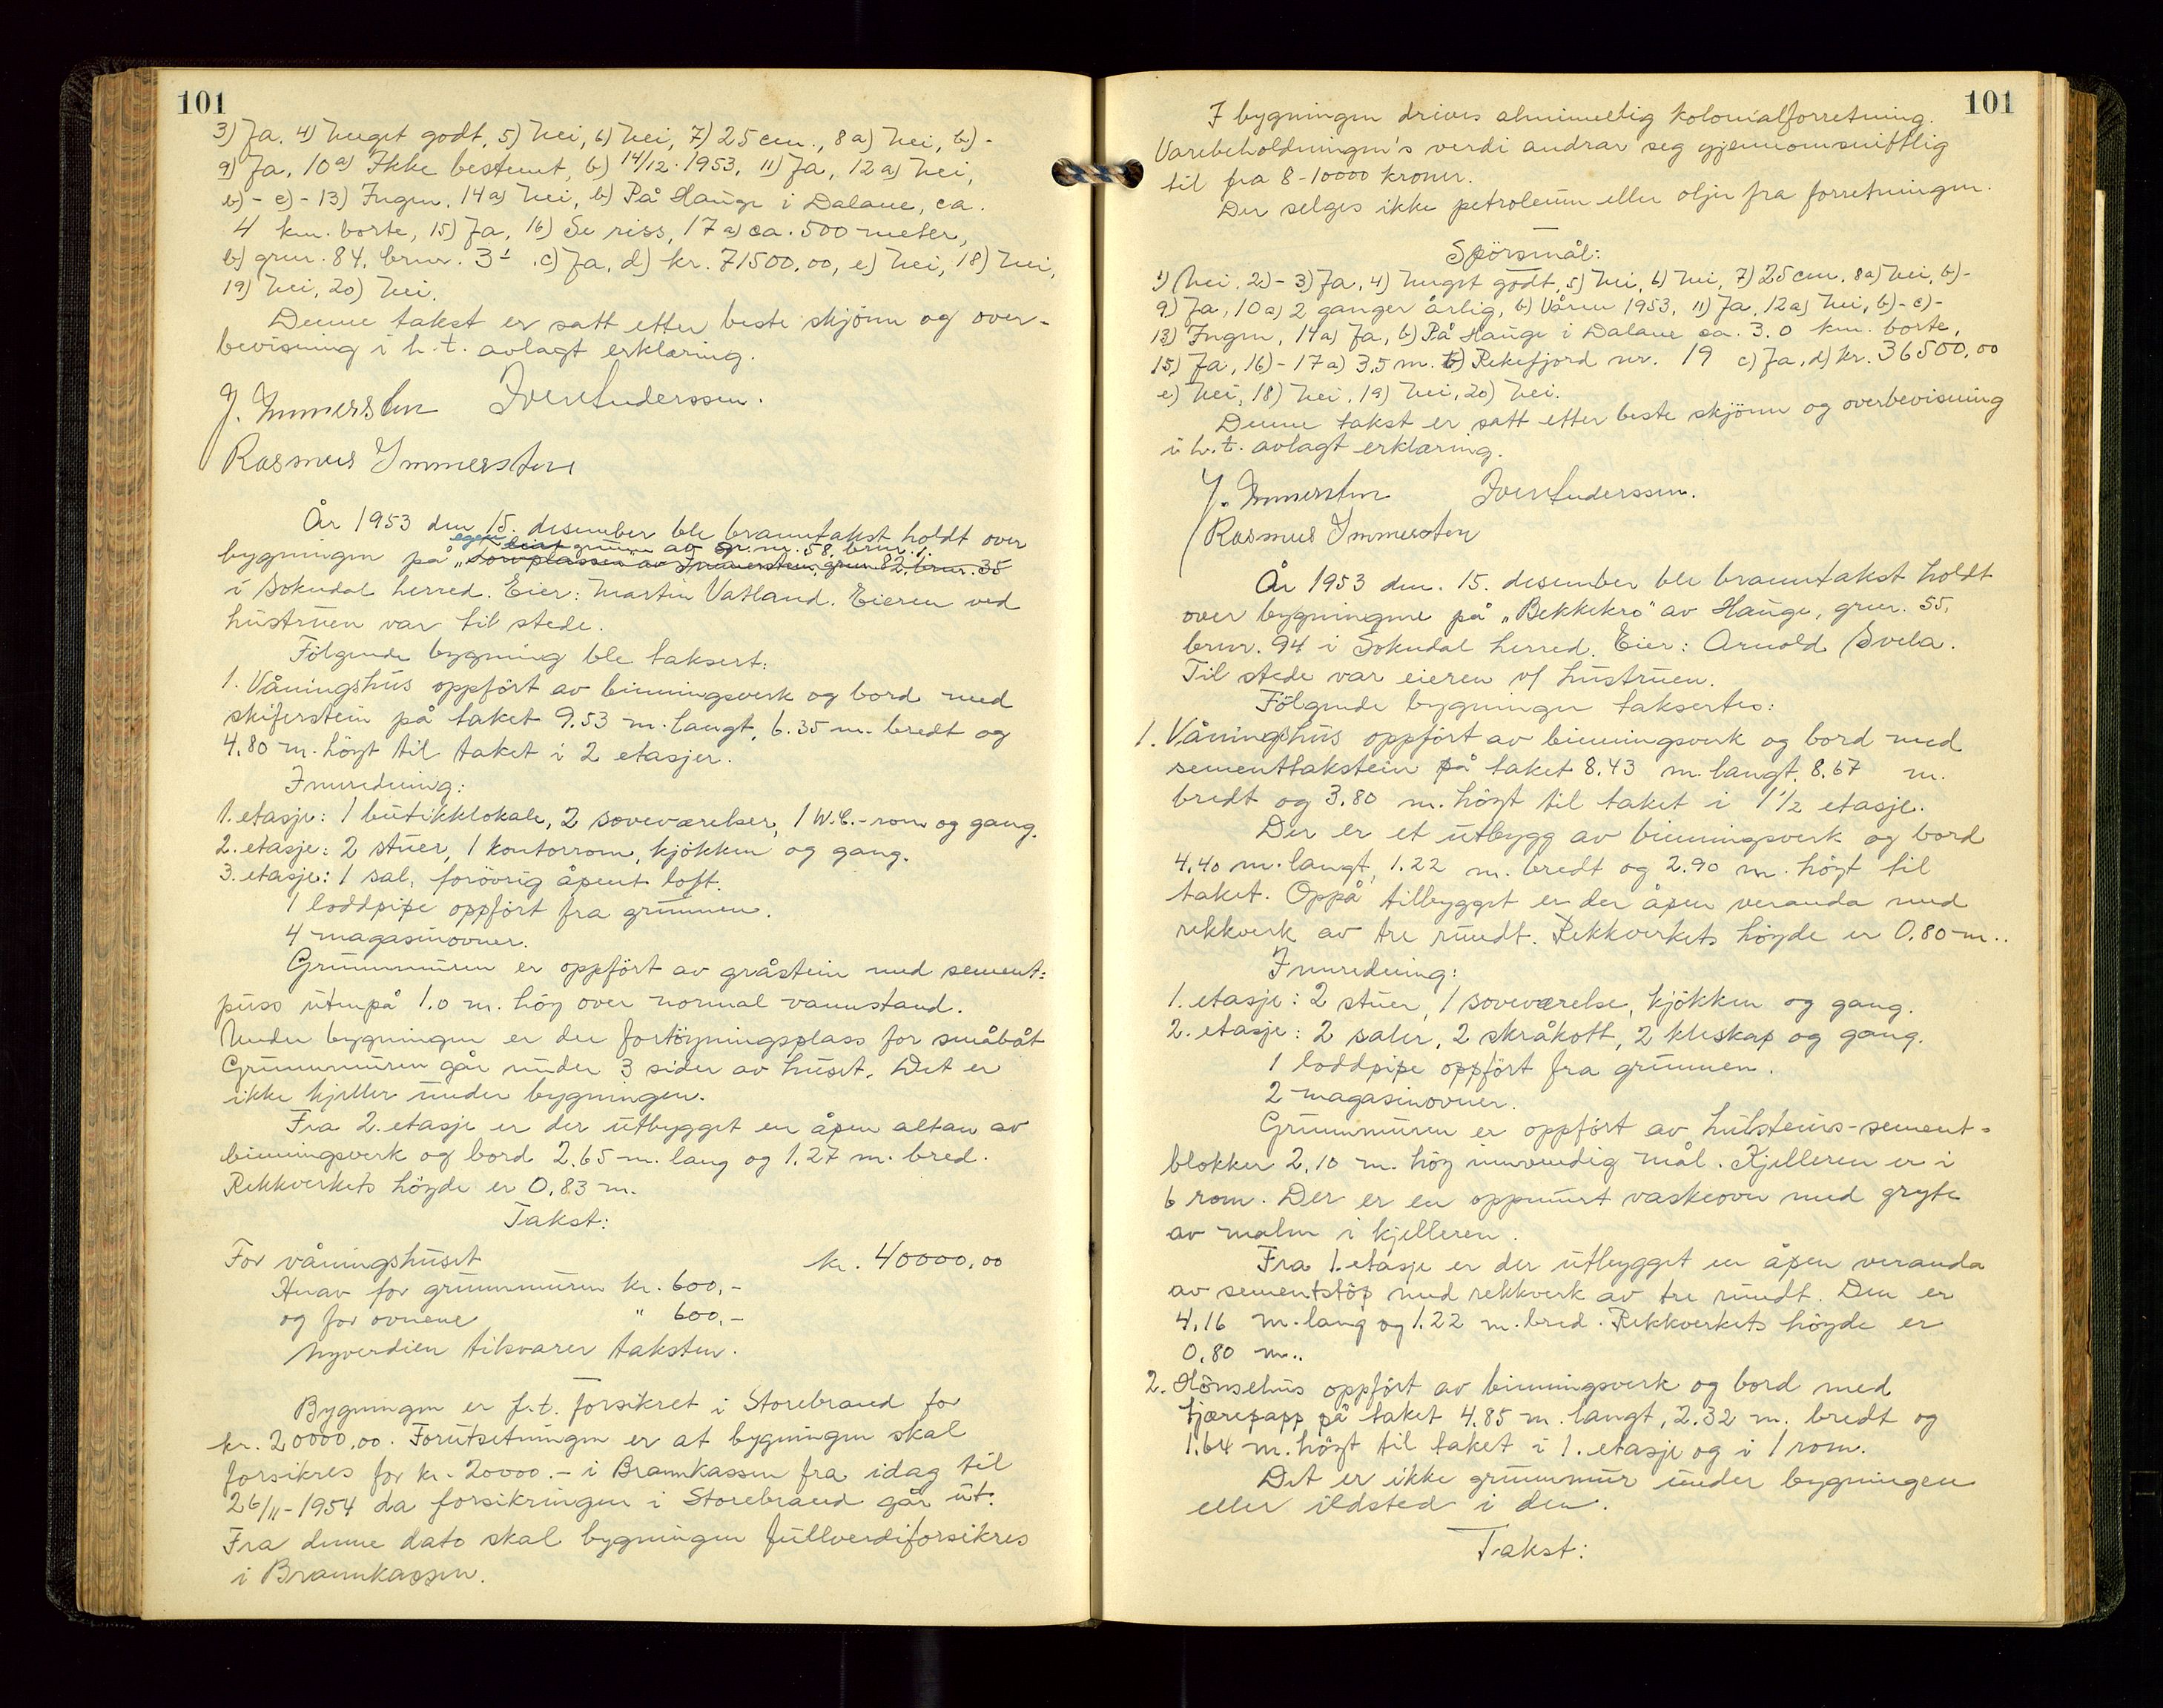 101
3) Ja, 4) Meget godt, 5) Nei, 6) Nei, 7) 25 cm., 8a) Nei, b) -
9) Ja, 10a) Ikke bestemt, b) 14/12-1953, 11) Ja, 12a) Nei,
b) - c) - 13) Ingen, 14a) Nei, b) På Hauge i Dalane, ca.
4 km. borte, 15) Ja, 16) Se riss, 17a) ca. 500 meter,
b) gnr. 84, brnr. 3 .c) Ja, d) kr. 71500,00, e) Nei, 18) Nei,
19) Nei, 20) Nei.
Denne takst er satt etter beste skjönn og over-
bevisning i h.t. avlagt erklæring.
J. Immerstein Iver Anderssen.
Rasmus Immerstein
År 1953 den 15. desember ble branntakst holdt over
egen grunn av gr.nr. 58, brnr. 1.
bygningen på „ av Immerstein, gnr. 82, brnr. 35
i Sokndal herred. Eier: Martin Vatland. Eieren ved
hustruen var til stede.
Fölgende bygning ble taksert:
1. Våningshus oppfört av binningsverk og bord med
skiferstein på taket 9.53 m. langt, 6.35 m. bredt og
4.80 m. höyt til taket i 2 etasjer.
Innredning:
1. etasje: 1 butikklokale, 2 soveværelser, 1 W.C.-rom og gang.
2. etasje: 2 stuer, 1 kontorrom, kjökken og gang.
3. etasje: 1 sal, forövrig åpent loft.
1 loddpipe oppfört fra grunnen.
4 magasinovner.
Grunnmuren er oppfört av gråstein med sement=
puss utenpå 1.0 m. höy over normal vannstand.
Under bygningen er der fortöyningsplass for småbåt
Grunnmuren går under 3 sider av huset. Det er
ikke kjeller under bygningen.
Fra 2. etasje er der utbygget en åpen altan av
binningsverk og bord 2.65 m. lang og 1.27 m. bred.
Rekkverkets höyde er 0,83 m.
Takst:
For våningshuset kr. 40000,00
Herav for grunnmuren kr. 600,-
og for ovnene " 600,-
Nyverdien tilsvarer taksten.
Bygningen er f.t. forsikret i Storebrand for
kr. 20000,00. Forutsetningen er at bygningen skal
forsikres for kr. 20000.- i Brannkassen fra idag til
26/11-1954 da forsikringen i Storebrand går ut.
Fra denne dato skal bygningen fullverdiforsikres
i Brannkassen.
101
I bygningen drives alminnelig kolonialforretning.
Varebeholdningen's verdi andrar seg gjennomsnittlig
til fra 8-10000 kroner.
Der selges ikke petroleum eller oljer fra forretningen.
Spörsmål:
1) Nei, 2) - 3) Ja, 4) Meget godt, 5) Nei, 6) Nei, 7) 25 cm. 8a) Nei, b) -
9) Ja, 10a) 2 ganger årlig, b) Våren 1953, 11) Ja, 12a) Nei, b) - c) -
13) Ingen, 14a) Ja, b) På Hauge i Dalane ca. 3.0 km. borte,
15) Ja, 16) - 17a) 3,5 m. b) Rekefjord nr. 19 c) Ja, d) kr. 36500,00
e) Nei, 18) Nei, 19) Nei, 20) Nei.
Denne takst er satt etter beste skjönn og overbevisning
i h.t. avlagt erklæring.
J. Immerstein Iver Anderssen.
Rasmus Immerstein
År 1953 den. 15. desember ble branntakst holdt
over bygningene på „Bekkekro" av Hauge, gnr. 55,
brnr. 94 i Sokndal herred. Eier: Arnold Svela.
Til stede var eieren v/ hustruen.
Fölgende bygninger taksertes:
1. Våningshus oppfört av binningsverk og bord med
sementtakstein på taket 8.43 m. langt, 8.67 m.
bredt og 3.80 m. höyt til taket i 1 1/2 etasje.
Der er et utbygg av binningsverk og bord
4,40 m. langt, 1.22 m. bredt og 2.90 m. höyt til
taket. Oppå tilbygget er der åpen veranda med
rekkverk av tre rundt. Rekkverkets höyde er 0.80 m..
Innredning:
1. etasje: 2 stuer, 1 soveværelse, kjökken og gang.
2. etasje: 2 saler, 2 skråkott, 2 kleskap og gang.
1 loddpipe oppfört fra grunnen.
2 magasinovner.
Grunnmuren er oppfört av hulsteins-sement=
blokker 2,10 m. höy innvendig mål. Kjelleren er i
6 rom. Der er en oppmurt vaskeovn med gryte
av malm i kjelleren.
Fra 1. etasje er der utbygget en åpen veranda
av sementstöp med rekkverk av tre rundt. Den er
4,16 m. lang og 1.22 m. bred. Rekkverkets höyde er
0,80 m..
2. Hönsehus oppfört av binningsverk og bord med
tjærepapp på taket 4.85 m. langt, 2.32 m. bredt og
1.64 m. höyt til taket i 1. etasje og i 1 rom.
Det er ikke grunnmur under bygningen
eller ildsted i den.
Takst: